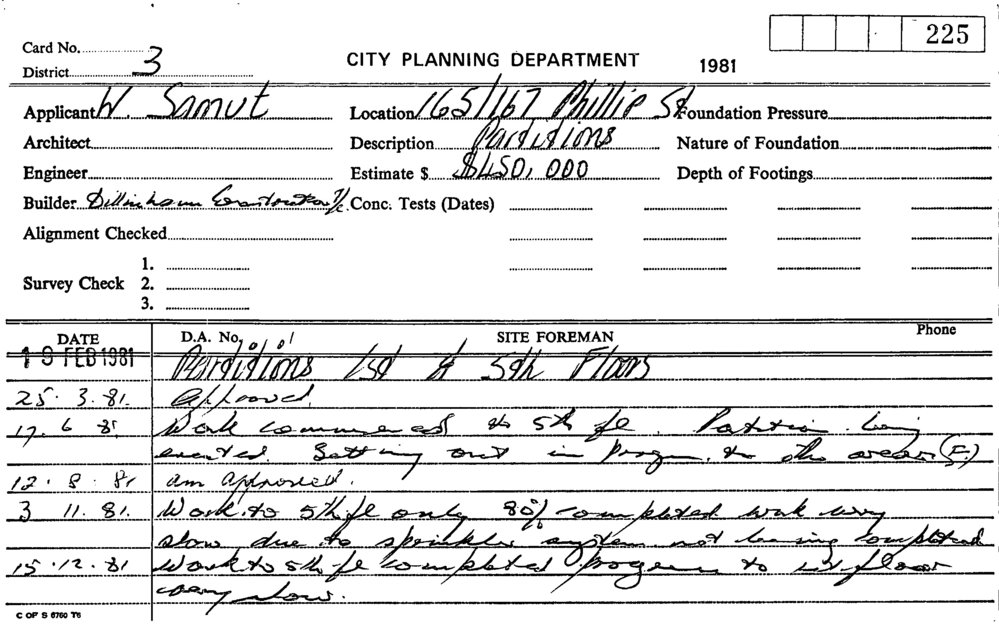 225
Card No.
District 3
CITY PLANNING DEPARTMENT 1981
Applicant W. Samut Location 165/167 Phillip St Foundation Pressure
Architect Description Partitions Nature of Foundation
Engineer Estimate $ $450,000 Depth of Footings
Builder Dillingham Construction P/L Conc. Tests (Dates)
Alignment Checked
1.
Survey Check 2.
3.
DATE D.A. No. SITE FOREMAN Phone
19 FEB 1981 Partitions 1st & 5th Floors
25. 3. 81. Approved.
17. 6 81. Work commenced to 5th fl. Partition being
erected. Setting out in Progress to other areas
12. 8. 81 am approved.
3 11. 81. Work to 5th fl only 80% completed work very
slow due to sprinkler system not being completed
15. 12. 81 Work to 5th fl completed progress to 1st floor
very slow.
C OF S 6760 T6